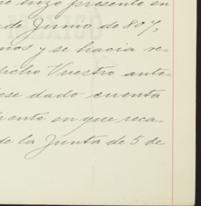 hizo presente en
de Junio de 807,
años y se hacía re-
dicho Vuestro ante-
ese dado cuenta
en que reca-
de la Junta de 5 de